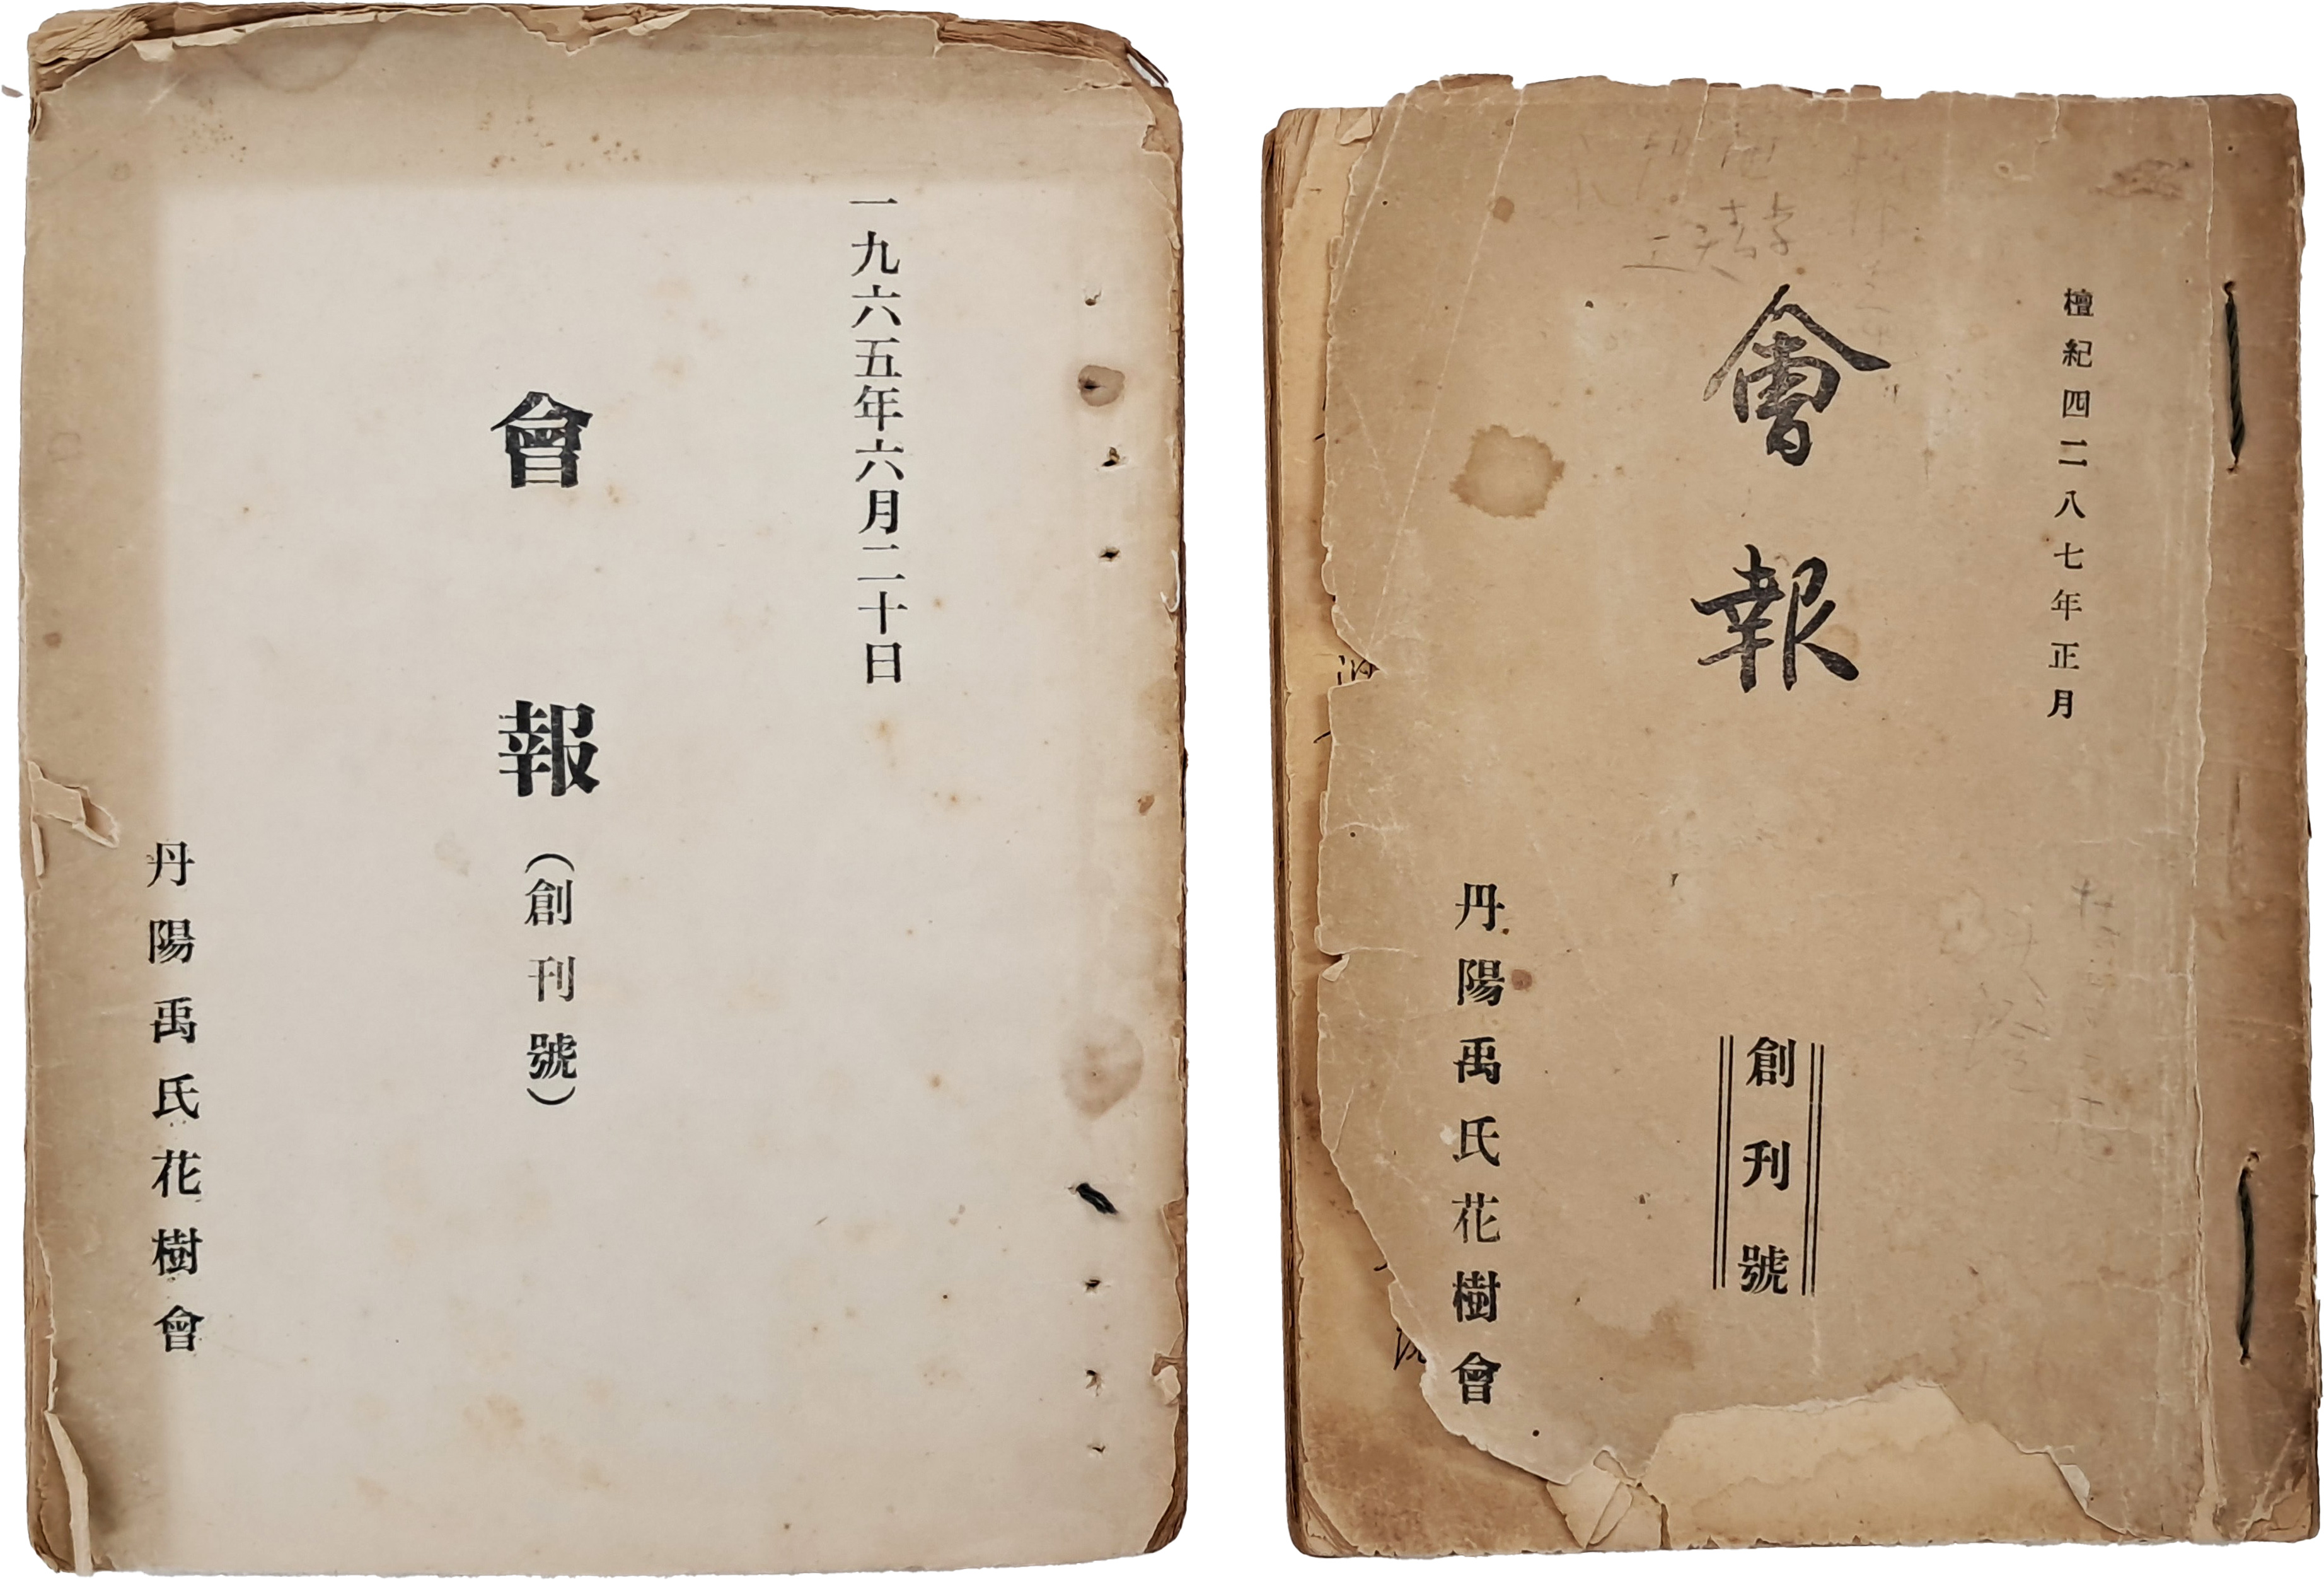 一九六五年六月二十日
會報(創刊號)
丹陽禹氏花樹會
檀紀四二八七年正月
會報
創刊號
丹陽禹氏花樹會